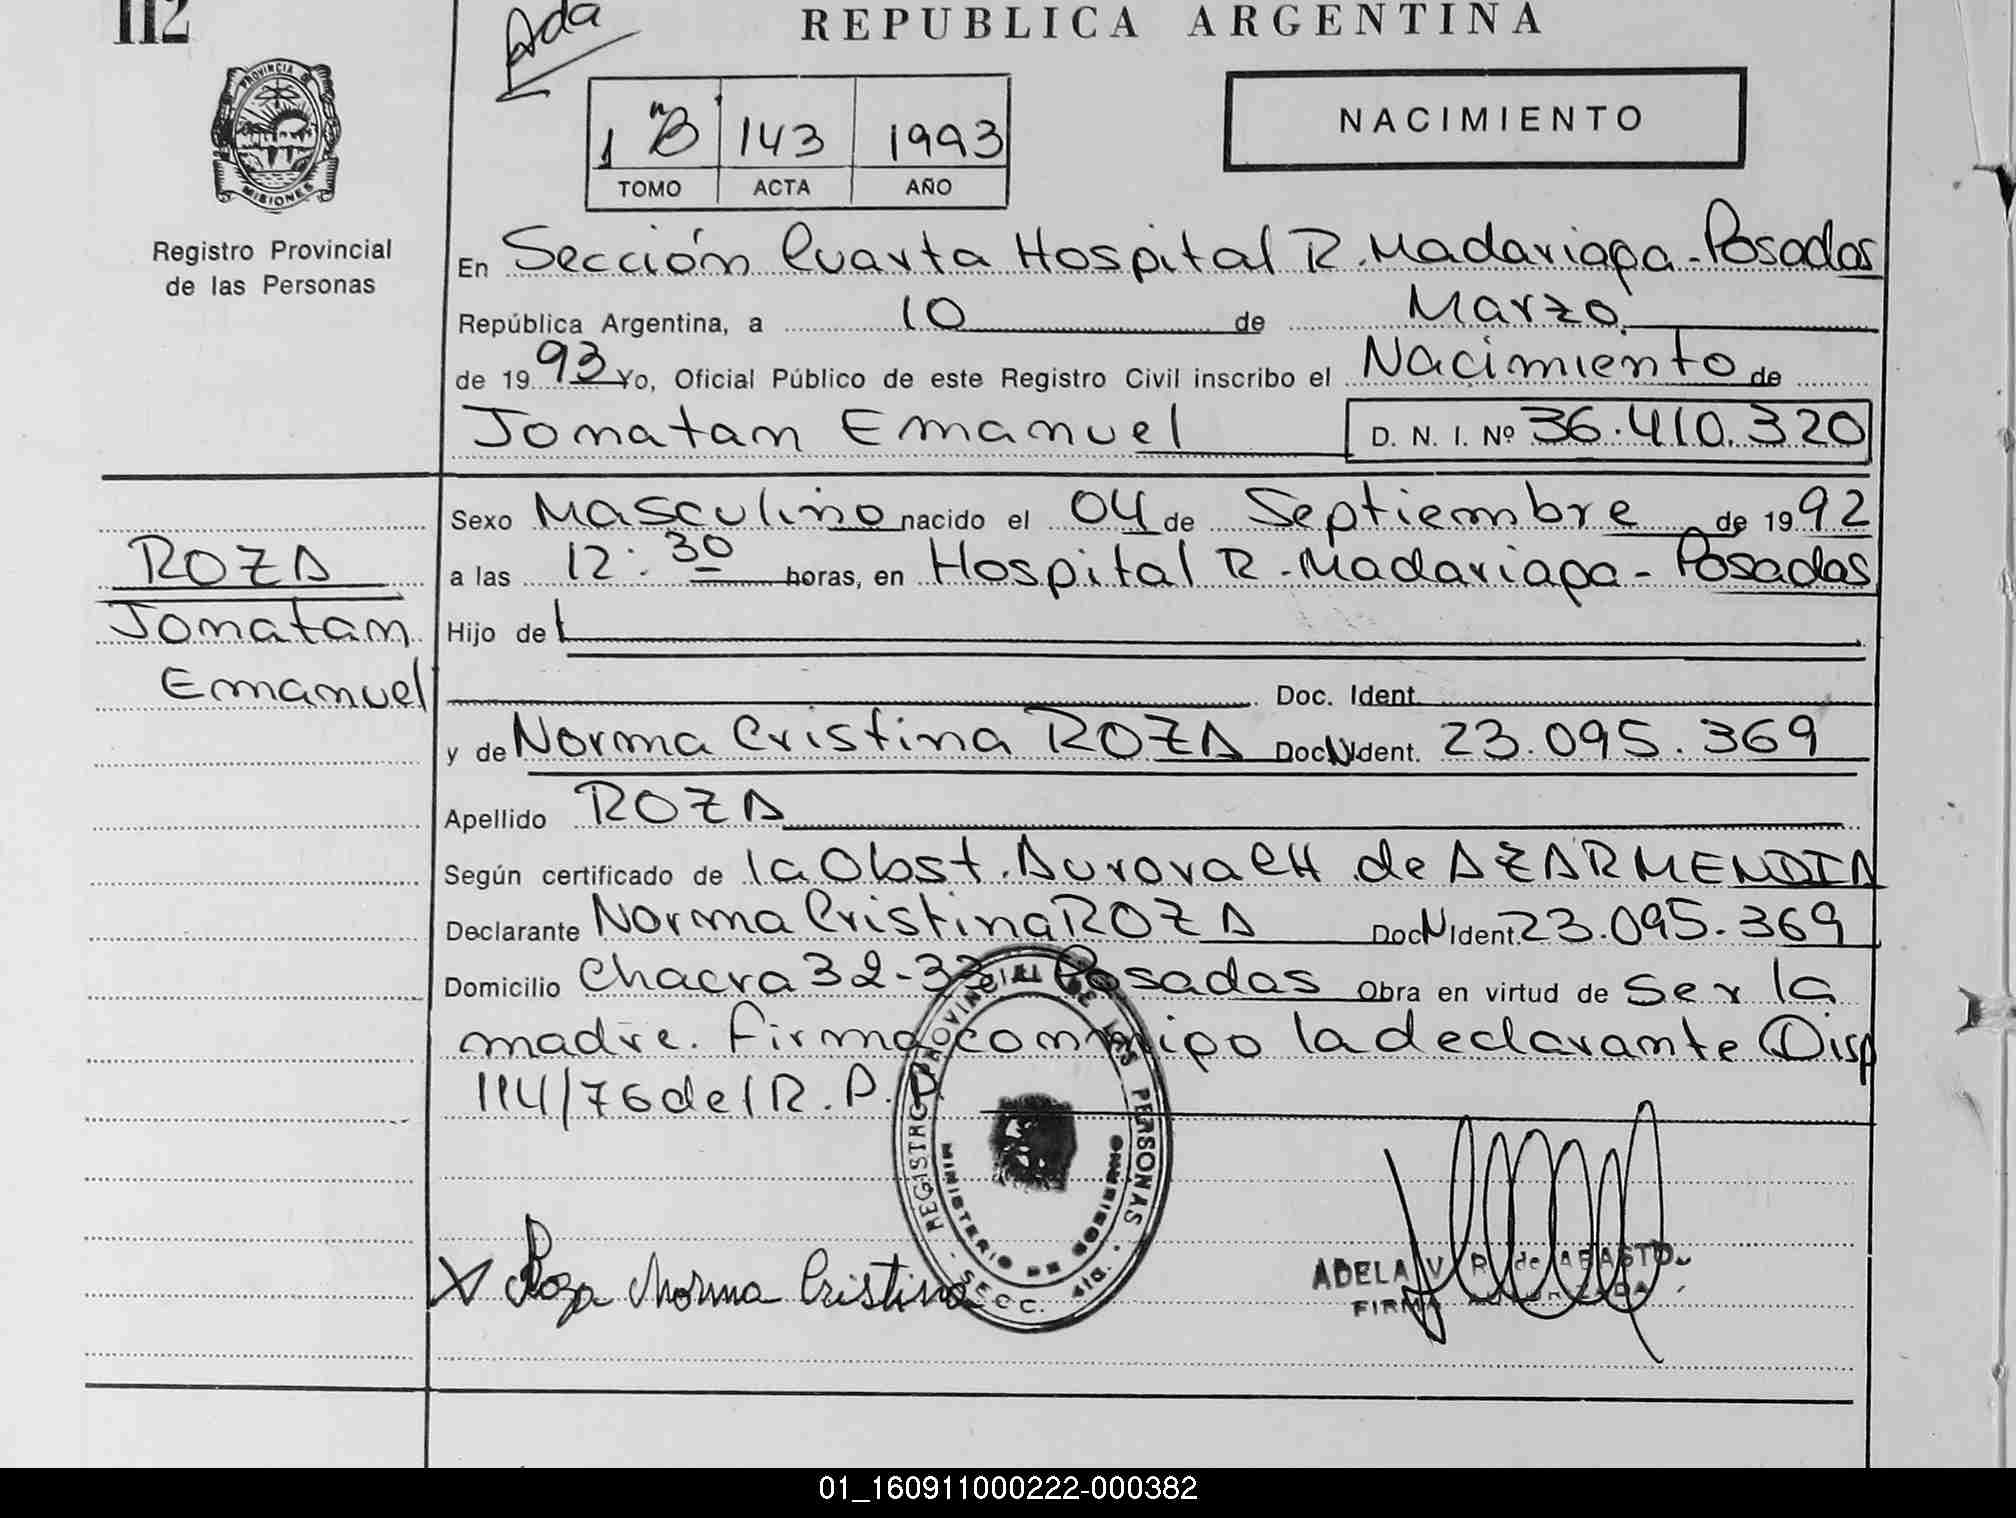 112
Ada
REPUBLICA ARGENTINA
PROVINCIA D MISIONES
Registro Provincial
de las Personas
1 "B 143 1993
TOMO ACTA AÑO
NACIMIENTO
En Sección Cuarta Hospital R. Madariaga - Posadas
República Argentina, a 10 de Marzo
de 1993 Yo, Oficial Público de este Registro Civil inscribo el Nacimiento de
Jonatan Emanuel D. N. I. Nº 36.410.320
ROZA
Jonatan
Emanuel
Sexo Masculino nacido el 04 de Septiembre de 1992
a las 12:30 horas, en Hospital R. Madariaga - Posadas
Hijo de
Doc. Ident.
y de Norma Cristina ROZA Doc N Ident. 23.095.369
Apellido ROZA
Según certificado de la Obst. Aurora CH de AZARMENDIA
Declarante Norma Cristina ROZA Doc N Ident. 23.095.369
Domicilio Chacra 32-33 Posadas Obra en virtud de Ser la
madre. Firma conmigo la declarante Disp
114/76 del R.P.P.
REGISTRO PROVINCIAL DE LAS PERSONAS
MINISTERIO DE GOBIERNO
SECC. 4ta.
X Roza Norma Cristina
ADELA V. R. de ABASTO
FIRMA AUTORIZADA
01_160911000222-000382